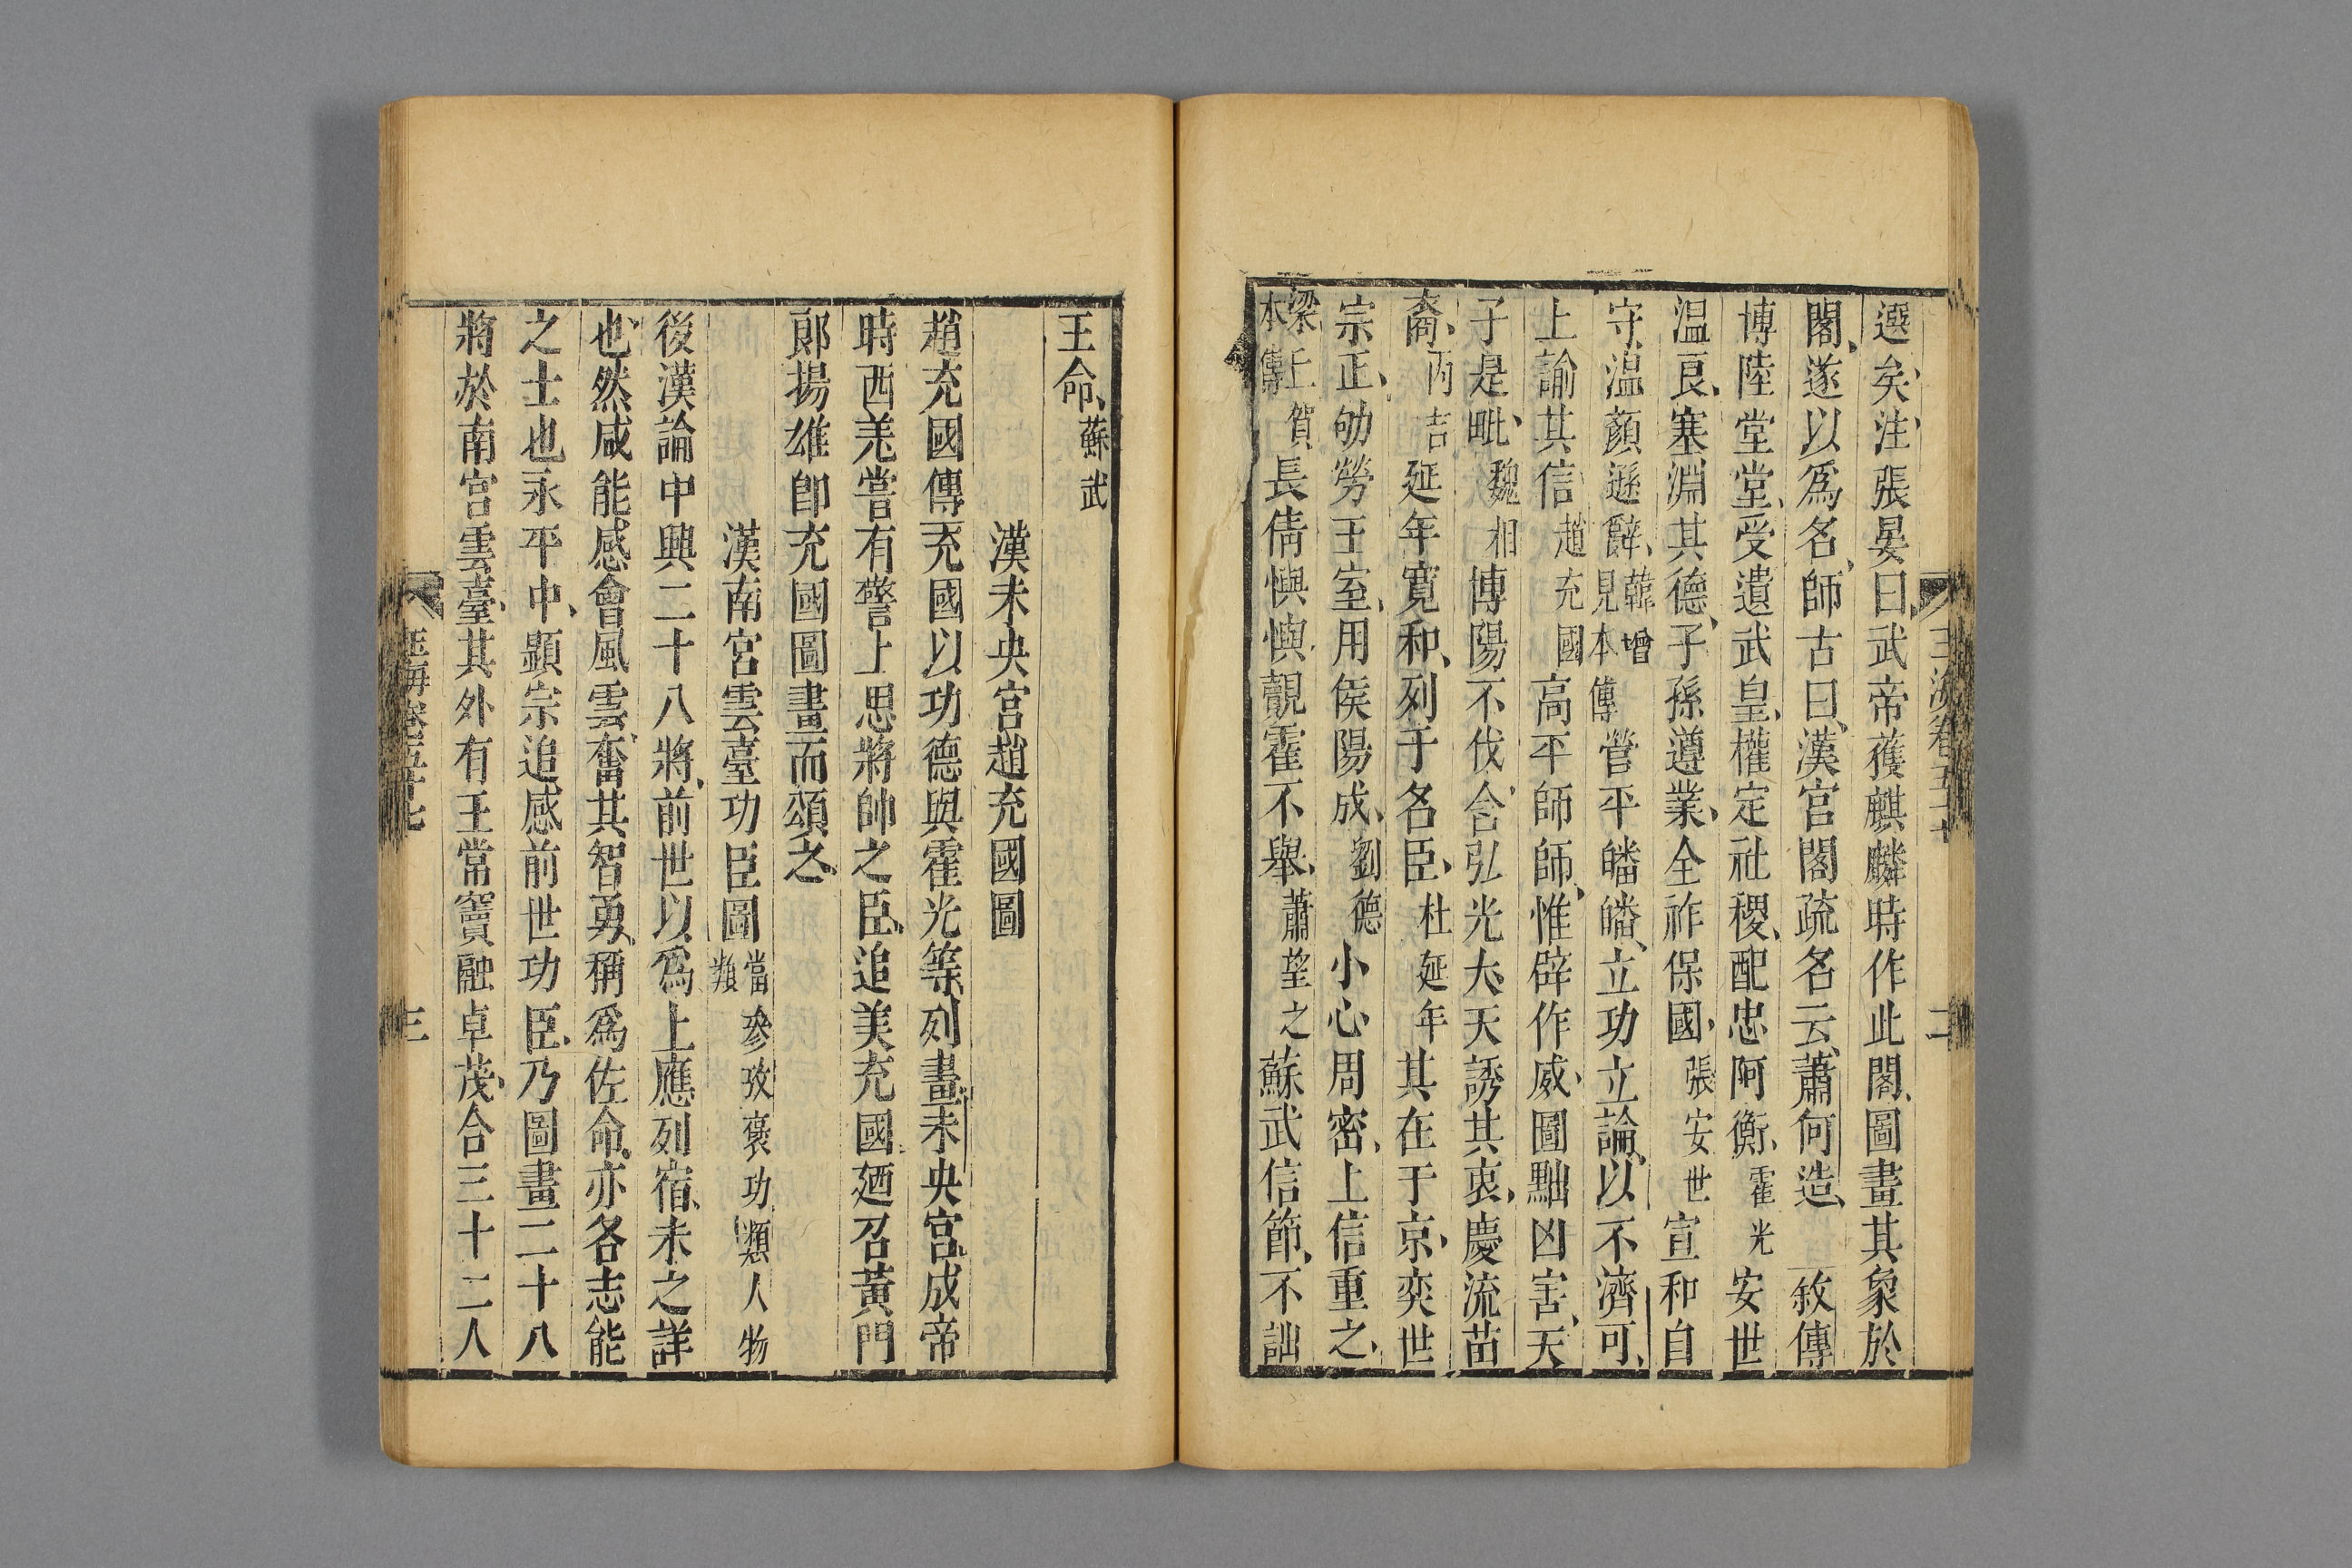 玉海卷五十七 二
選矣注張晏曰武帝獲麒麟時作此閣圖畫其象於
閣遂以為名師古曰漢宮閣疏名云蕭何造 敘傳
博陸堂堂受遺武皇權定社稷配忠阿衡霍光安世
温良塞淵其德子孫遵業全祚保國張安世宣和自
守温顏遜辭韓增見本傳營平皤皤立功立論以不濟可
上諭其信趙充國高平師師惟辟作威圖黜凶害天
子是毗魏相博陽不伐含弘光大天誘其衷慶流苗
裔丙吉延年寬和列于名臣杜延年其在于京奕世
宗正劬勞王室用侯陽成劉德小心周密上信重之
梁丘賀本傳長倩懙懙覿霍不舉蕭望之蘇武信節不詘
王命蘇武
漢未央宮趙充國圖
趙充國傳充國以功德與霍光等列畫未央宮成帝
時西羌嘗有警上思將帥之臣追美充國廼召黃門
郎揚雄即充國圖畫而頌之
漢南宮雲臺功臣圖當參攷褒功類人物類
後漢論中興二十八將前世以為上應列宿未之詳
也然咸能感會風雲奮其智勇稱為佐命亦各志能
之士也永平中顯宗追感前世功臣乃圖畫二十八
將於南宮雲臺其外有王常竇融卓茂合三十二人
玉海卷五十七 三